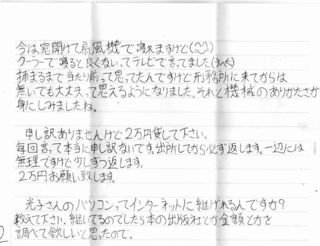 今は窓開けて扇風機で寝れますけど(^^)
クーラーで寝ると良くないってテレビで言ってました
捕まるまで当たり前って思ってたんですけど刑務所に来てからは
無いても大丈夫って思えるようになりました。それと機械のありがたさが
身にしみましたね。
申し訳ありませんけど2万円貸して下さい。
毎回言って本当に申し訳ないです。出所してから必ず返します。一辺には
無理ですけど少しずつ返します。
2万円お願い致します。
光子さんのパソコンってインターネットに継げれるんですか?
教えて下さい。継いでるのでしたら本の出版社とか金額とかを
調べて欲しいと思ったので。
2